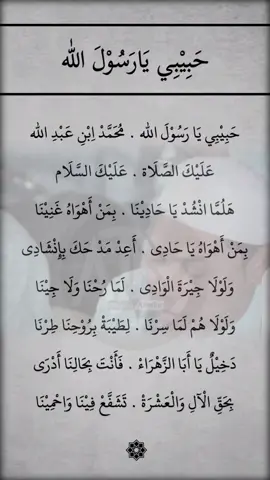 حَبِيْبِي يَارَسُوْلَ الله
حَبِيْبِي يَا رَسُوْلَ الله . مُحَمَّدْ اِبْنِ عَبْدِ الله
عَلَيْكَ الصَّلَاة . عَلَيْكَ السَّلَام
هَلُمَّا انْشُدْ يَا حَادِيْنَا . بِمَنْ أَهْوَاهُ غَنِيْنَا
بِمَنْ أَهْوَاهُ يَا حَادِى . أَعِدْ مَدْ حَكَ بِإِنْشَادِى
وَلَوْلَا جِيْرَةَ الْوَادِى . لَمَا رُحْنَا وَلَا جِيْنَا
وَلَوْلَا هُمْ لَمَا سِرْنَا . لِطَيْبَةْ بِرُوْحِنَا طِرْنَا
دَخِيْلْ يَا أَبَا الزَّهْرَاءْ . فَأَنْتَ بِحَالِنَا أَدْرَى
بِحَقِّ الْآلِ وَالْعَشْرَةْ . تَشَفَّعْ فِيْنَا وَاحْمِيْنَا